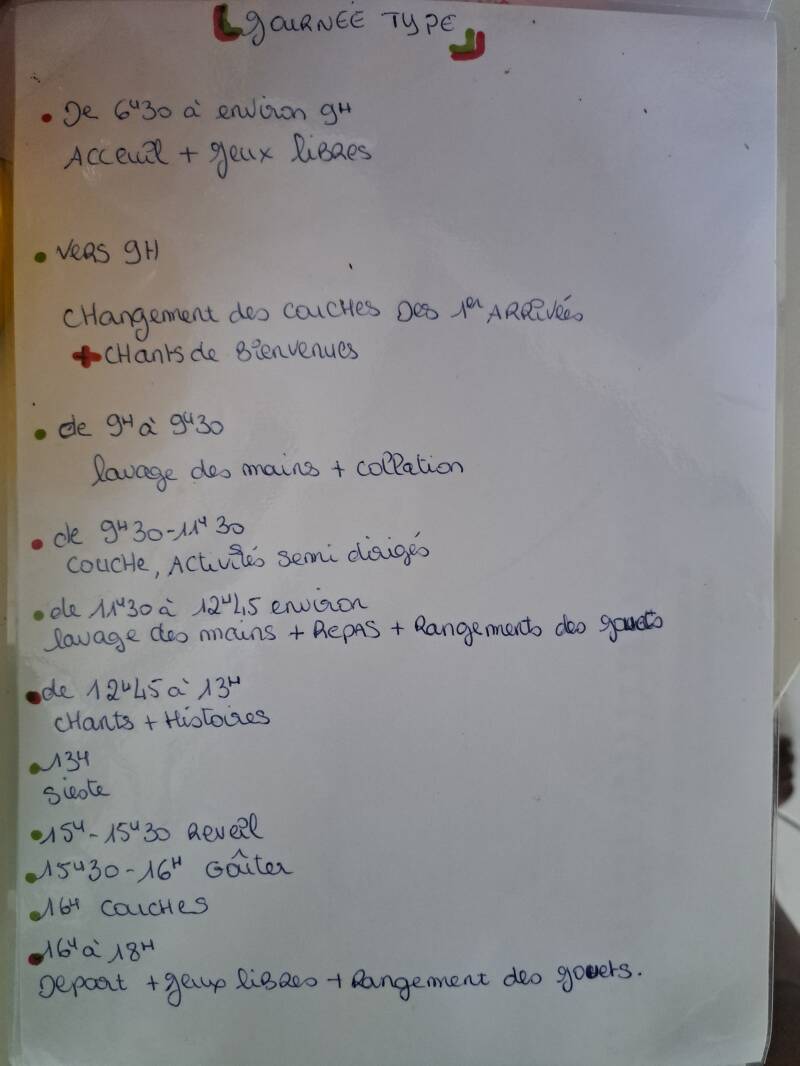 JOURNÉE TYPE
De 6H30 à environ 9H
Acceuil + jeux libres
Vers 9H
Changement des couches des 1er arrivées
+ Chants de bienvenues
de 9H à 9H30
lavage des mains + collation
de 9H30-11H30
couche, Activités semi dirigés
de 11H30 à 12H45 environ
lavage des mains + Repas + Rangements des jouets
de 12H45 à 13H
chants + Histoires
13H
Sieste
15H-15H30 Reveil
15H30-16H Goûter
16H couches
16H à 18H
Depart + jeux libres + Rangement des jouets.